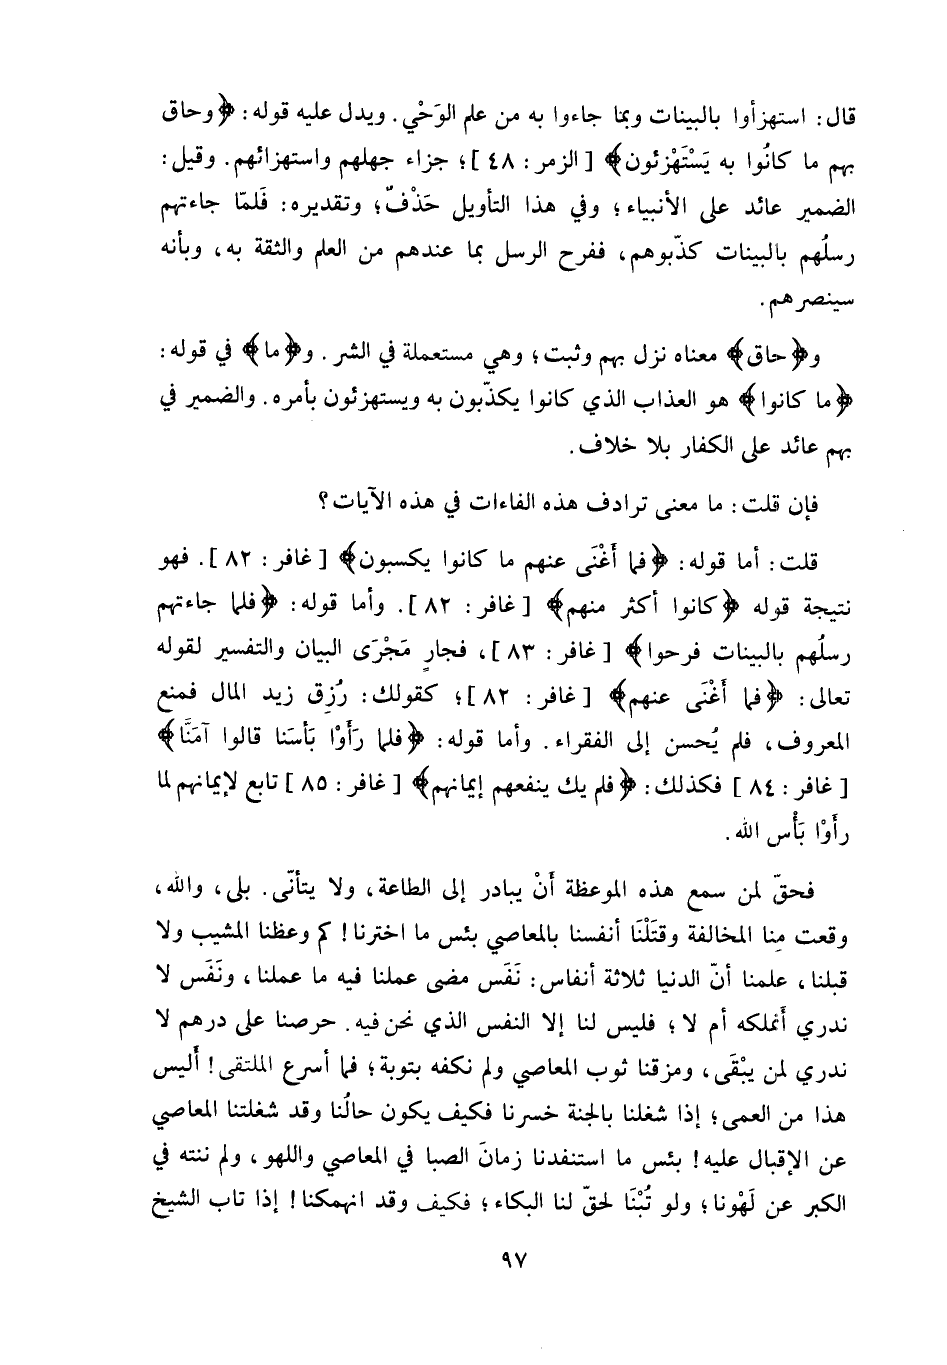 قال: استهزأوا بالبينات وبما جاءوا به من علم الوَحْي. ويدل عليه قوله: ﴿وحاق
بهم ما كانُوا به يَسْتَهْزئون﴾ [الزمر: ٤٨]؛ جزاء جهلهم واستهزائهم. وقيل:
الضمير عائد على الأنبياء؛ وفي هذا التأويل حَذْفٌ؛ وتقديره: فَلمّا جاءتهم
رسلُهم بالبينات كذّبوهم، ففرح الرسل بما عندهم من العلم والثقة به، وبأنه
سينصرهم.
و﴿حاق﴾ معناه نزل بهم وثبت؛ وهي مستعملة في الشر. و﴿ما﴾ في قوله:
﴿ما كانوا﴾ هو العذاب الذي كانوا يكذّبون به ويستهزئون بأمره. والضمير في
بهم عائد على الكفار بلا خلاف.
فإن قلت: ما معنى ترادف هذه الفاءات في هذه الآيات؟
قلت: أما قوله: ﴿فما أَغْنَى عنهم ما كانوا يكسبون﴾ [غافر: ٨٢]. فهو
نتيجة قوله ﴿كانوا أكثر منهم﴾ [غافر: ٨٢]. وأما قوله: ﴿فلما جاءتهم
رسلُهم بالبينات فرحوا﴾ [غافر: ٨٣]، فجارٍ مَجْرَى البيان والتفسير لقوله
تعالى: ﴿فما أَغْنَى عنهم﴾ [غافر: ٨٢]؛ كقولك: رُزِق زيد المال فمنع
المعروف، فلم يُحسن إلى الفقراء. وأما قوله: ﴿فلما رَأَوْا بَأسَنا قالوا آمَنَّا﴾
[غافر: ٨٤] فكذلك: ﴿فلم يك ينفعهم إيمانهم﴾ [غافر: ٨٥] تابع لإيمانهم لما
رأَوْا بَأْس الله.
فحقّ لمن سمع هذه الموعظة أَنْ يبادر إلى الطاعة، ولا يتأنّى. بلى، والله،
وقعت مِنا المخالفة وقتَلْنَا أنفسنا بالمعاصي بئس ما اخترنا! كم وعظنا المشيب ولا
قبلنا، علمنا أنّ الدنيا ثلاثة أنفاس: نَفَس مضى عملنا فيه ما عملنا، ونَفَس لا
ندري أَنملكه أم لا؛ فليس لنا إلا النفس الذي نحن فيه. حرصنا على درهم لا
ندري لمن يبْقَى، ومزقنا ثوب المعاصي ولم نكفه بتوبة؛ فما أسرع الملتقى! أَليس
هذا من العمى؛ إذا شغلنا بالجنة خسرنا فكيف يكون حالُنا وقد شغلتنا المعاصي
عن الإقبال عليه! بئس ما استنفدنا زمانَ الصبا في المعاصي واللهو، ولم ننته في
الكبر عن لَهْونا؛ ولو تُبْنَا لحقّ لنا البكاء؛ فكيف وقد انهمكنا! إذا تاب الشيخ
٩٧